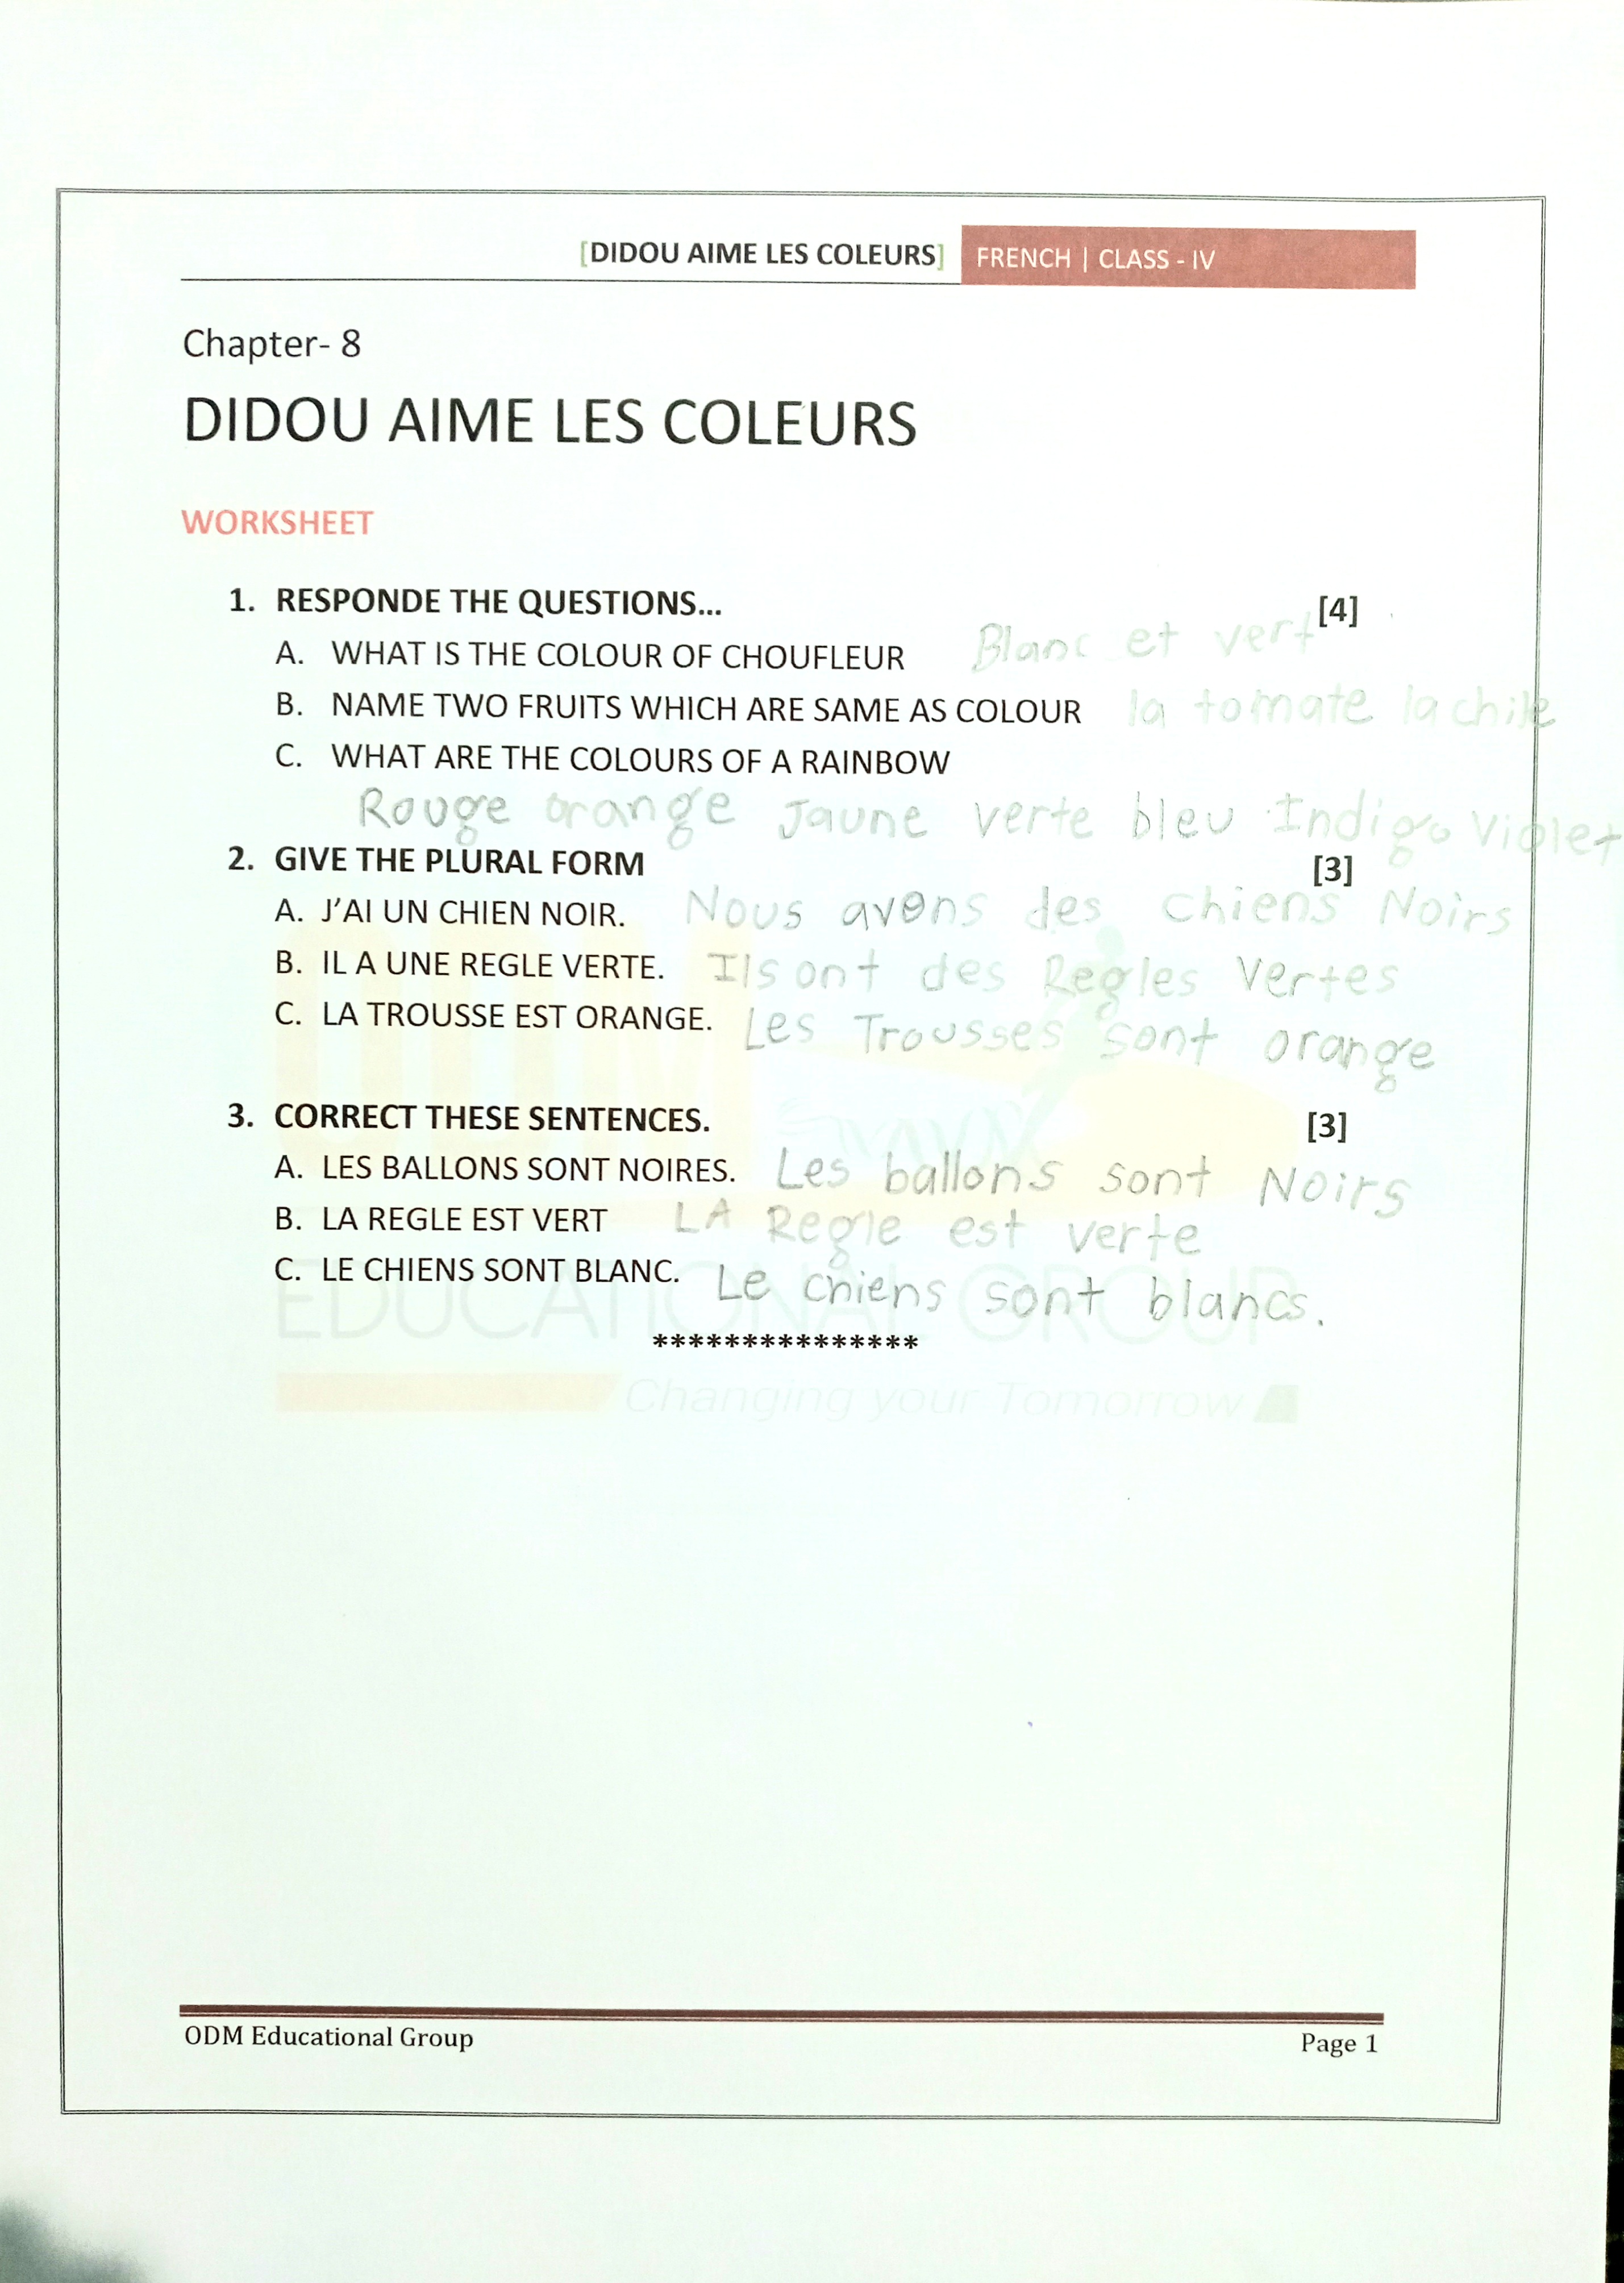 [DIDOU AIME LES COLEURS] FRENCH | CLASS - IV
Chapter- 8
DIDOU AIME LES COLEURS
WORKSHEET
1. RESPONDE THE QUESTIONS... [4]
A. WHAT IS THE COLOUR OF CHOUFLEUR Blanc et vert
B. NAME TWO FRUITS WHICH ARE SAME AS COLOUR la tomate la chile
C. WHAT ARE THE COLOURS OF A RAINBOW
Rouge orange Jaune verte bleu Indigo Violet
2. GIVE THE PLURAL FORM [3]
A. J'AI UN CHIEN NOIR. Nous avons des chiens Noirs
B. IL A UNE REGLE VERTE. Ils ont des Regles Vertes
C. LA TROUSSE EST ORANGE. Les Trousses sont orange
3. CORRECT THESE SENTENCES. [3]
A. LES BALLONS SONT NOIRES. Les ballons sont Noirs
B. LA REGLE EST VERT LA Regle est verte
C. LE CHIENS SONT BLANC. Le chiens sont blancs.
***************
ODM
EDUCATIONAL GROUP
Changing your Tomorrow
ODM Educational Group Page 1